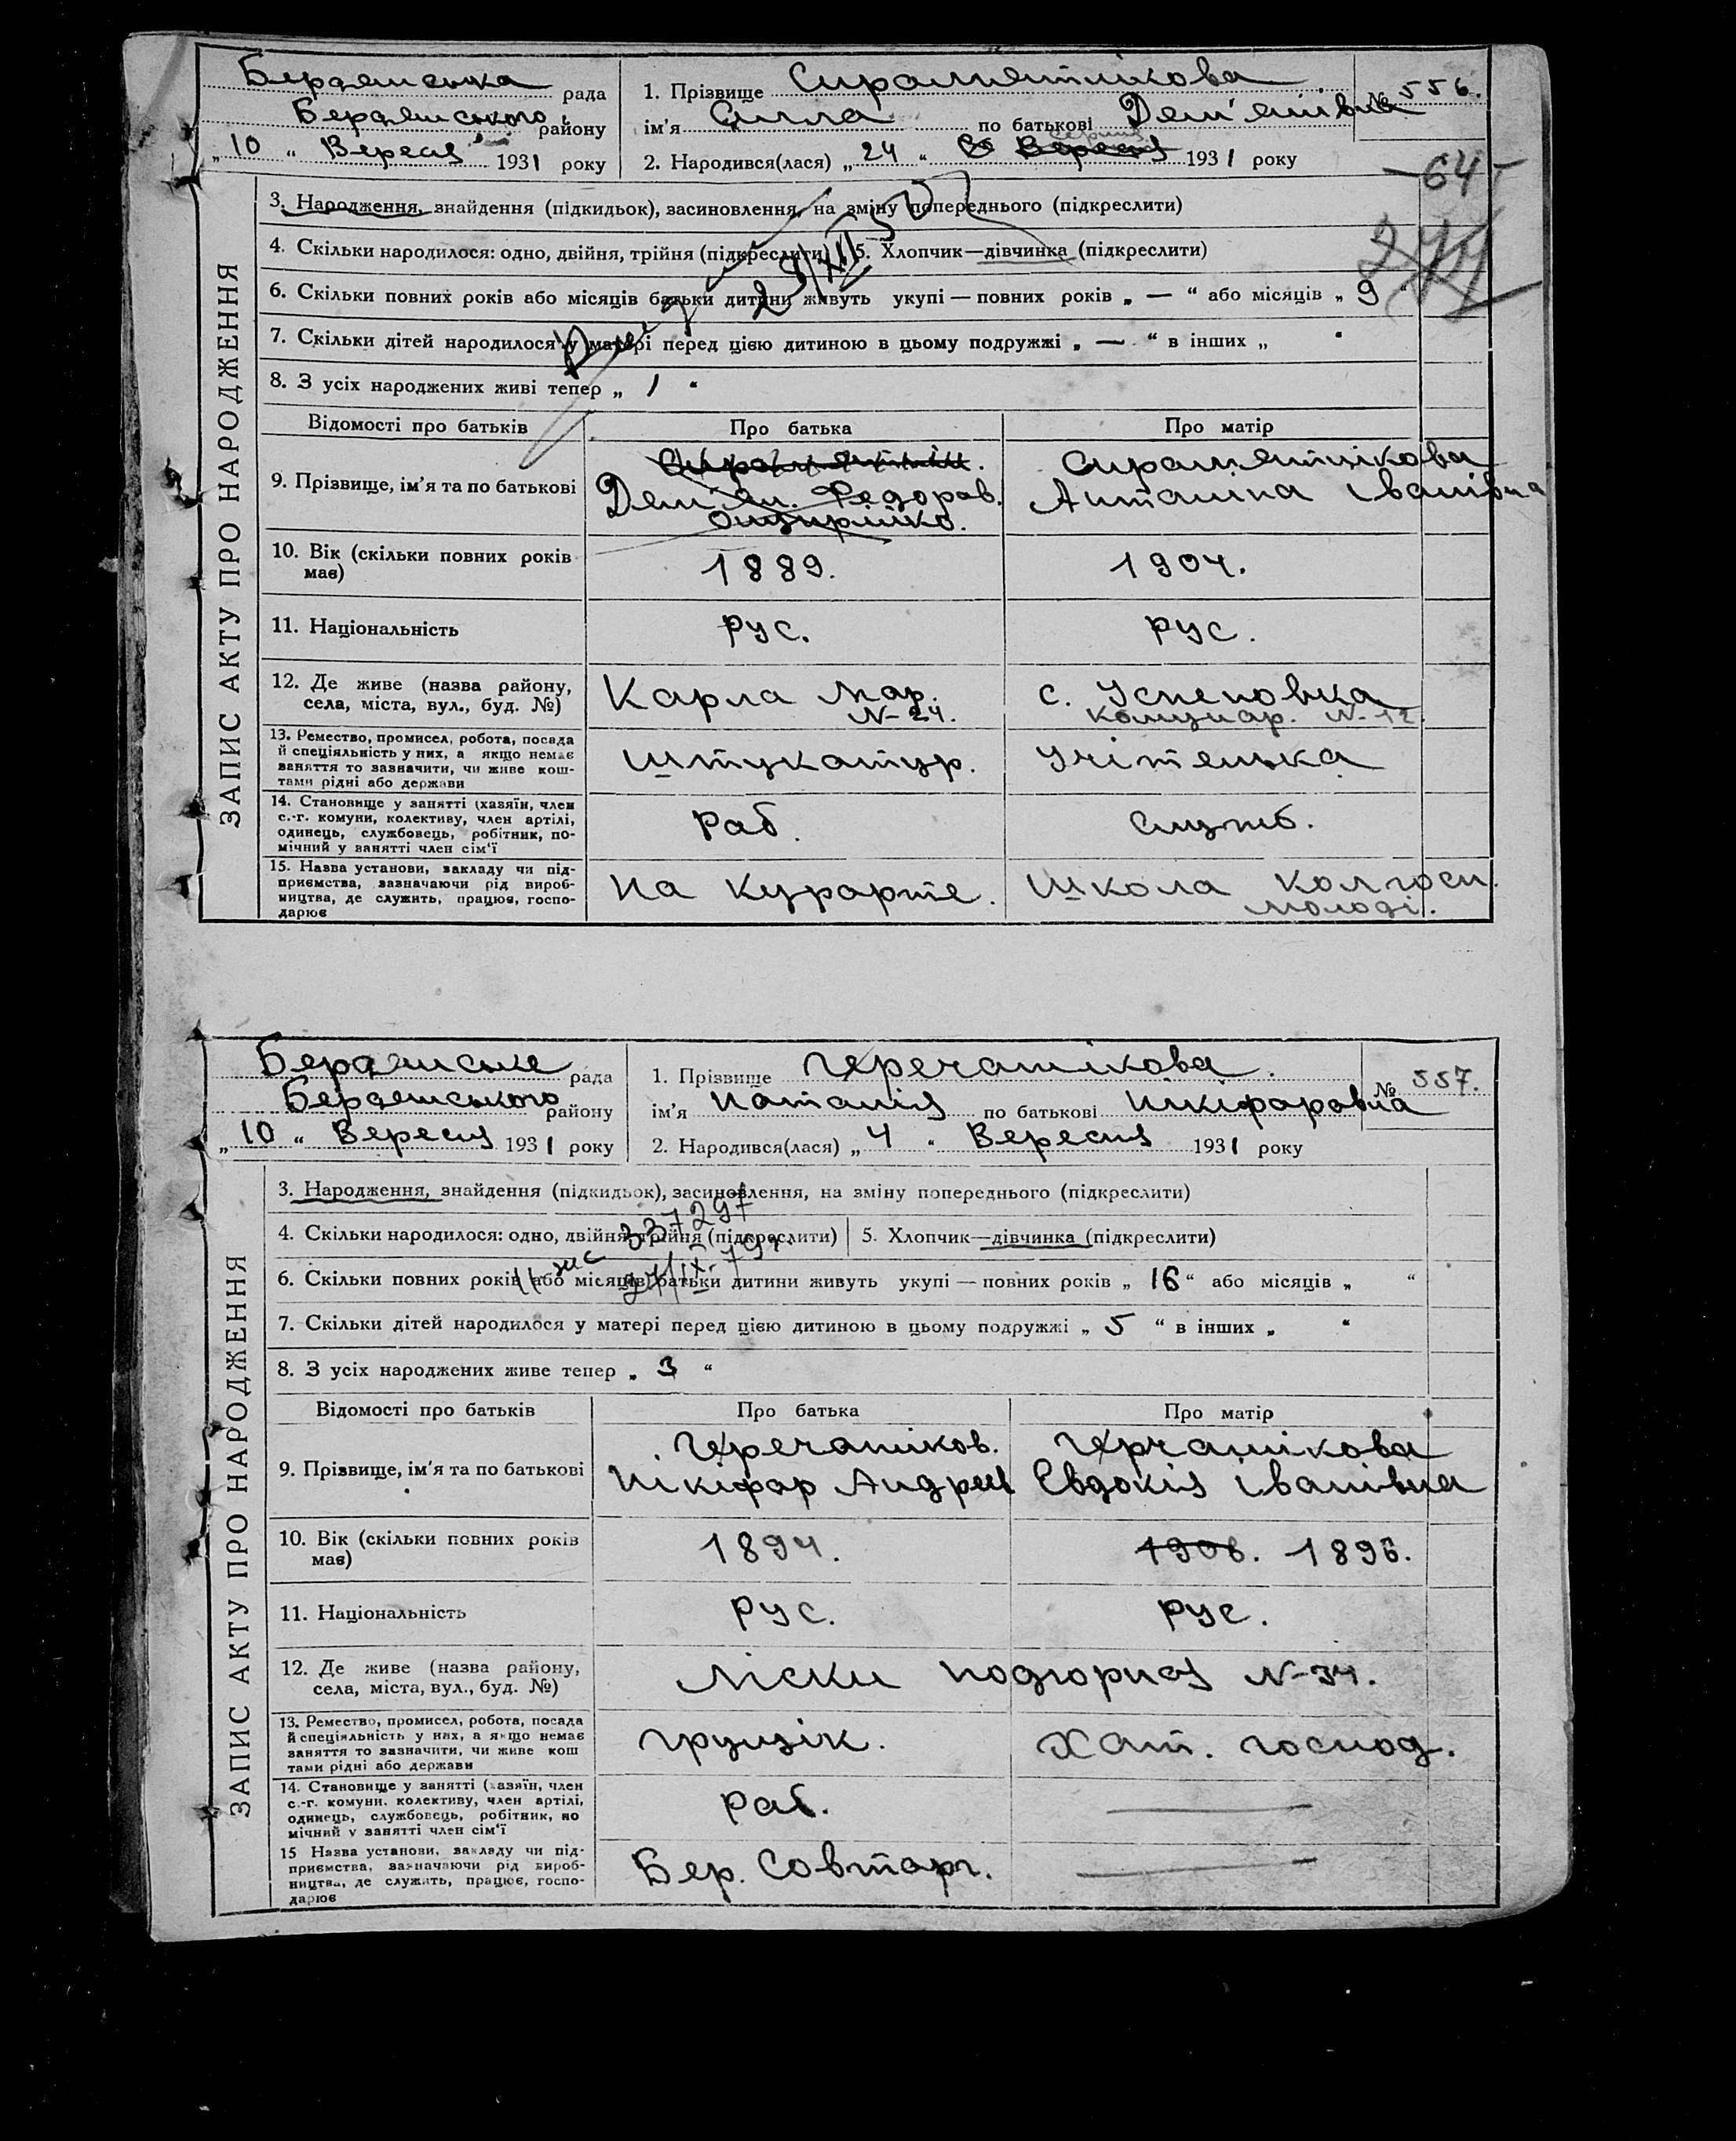 Бердянська рада
Бердянського району
„ 10 “ Вересня 1931 року
1. Прізвище Сиромятнікова
№ 556.
ім’я Єлла по батькові Дем'янівна
2. Народився(лася) „ 24 “ Вересня серпня 1931 року
– 64 –
ЗАПИС АКТУ ПРО НАРОДЖЕННЯ
3. Народження, знайдення (підкидьок), засиновлення, на зміну попереднього (підкреслити)
4. Скільки народилося: одно, двійня, трійня (підкреслити) 5. Хлопчик—дівчинка (підкреслити)
6. Скільки повних років або місяців батьки дитини живуть укупі — повних років „ — “ або місяців „ 9 “
7. Скільки дітей народилося у матері перед цією дитиною в цьому подружжі „ — “ в інших „ “
8. З усіх народжених живі тепер „ 1 “
Відомості про батьків Про батька Про матір
9. Прізвище, ім’я та по батькові
Дем'ян. Федоров.
Сиромятнікова
Антаніна Іванівна
10. Вік (скільки повних років має) 1889. 1904.
11. Національність рус. рус.
12. Де живе (назва району, села, міста, вул., буд. №)
Карла Мар. N-24.
с. Успеновка
Комунар. N-12.
13. Ремество, промисел, робота, посада
й спеціяльність у них, а якщо немає
заняття то зазначити, чи живе кош-
тами рідні або держави
Штукатур. Учітелька
14. Становище у занятті (хазяїн, член
с.-г. комуни, колективу, член артілі,
одинець, службовець, робітник, по-
мічний у занятті член сім‘ї
Раб. Служб.
15. Назва установи, закладу чи під-
приємства, зазначаючи рід вироб-
ництва, де служить, працює, госпо-
дарює
На курорте. Школа колгосп.
молоді.
Бердянське рада
Бердянського району
„ 10 “ Вересня 1931 року
1. Прізвище Черечатнікова.
№ 557.
ім’я Наталія по батькові Нікіфоровна
2. Народився(лася) „ 4 “ Вересня 1931 року
ЗАПИС АКТУ ПРО НАРОДЖЕННЯ
3. Народження, знайдення (підкидьок), засиновлення, на зміну попереднього (підкреслити)
4. Скільки народилося: одно, двійня, трійня (підкреслити) 5. Хлопчик—дівчинка (підкреслити)
337297
27/IX-79г.
6. Скільки повних років або місяців батьки дитини живуть укупі — повних років „ 16 “ або місяців „ “
7. Скільки дітей народилося у матері перед цією дитиною в цьому подружжі „ 5 “ в інших „ “
8. З усіх народжених живе тепер „ 3 “
Відомості про батьків Про батька Про матір
9. Прізвище, ім’я та по батькові
Черечатніков.
Нікіфор Андрєев
Черчатнікова
Евдокія Іванівна
10. Вік (скільки повних років має) 1894. 1906. 1896.
11. Національність рус. рус.
12. Де живе (назва району, села, міста, вул., буд. №)
Ліски Подгорная N-34.
13. Ремество, промисел, робота, посада
й спеціяльність у них, а якщо немає
заняття то зазначити, чи живе кош
тами рідні або держави
грущік. Хат. господ.
14. Становище у занятті (хазяїн, член
с.-г. комуни, колективу, член артілі,
одинець, службовець, робітник, по
мічний у занятті член сім‘ї
Раб. —
15 Назва установи, закладу чи під-
приємства, зазначаючи рід вироб-
ництва, де служить, працює, госпо-
дарює
Бер. Совторг. —